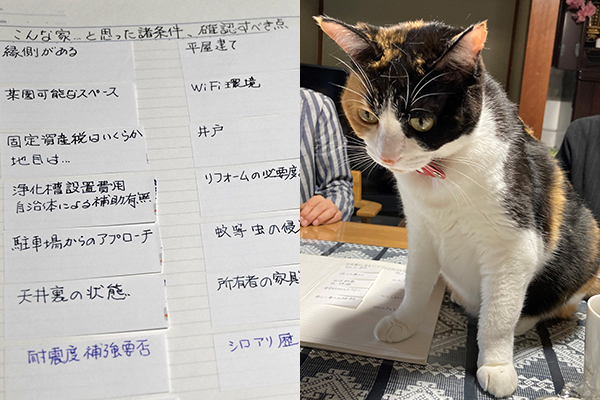 こんな家…と思った諸条件、確認すべき点
縁側がある
菜園可能なスペース
固定資産税はいくらか
地目は…
浄化槽設置費用
自治体による補助有無
駐車場からのアプローチ
天井裏の状態
耐震度 補強要否
平屋建て
WiFi環境
井戸
リフォームの必要度
蚊等虫の侵
所有者の家具
シロアリ歴